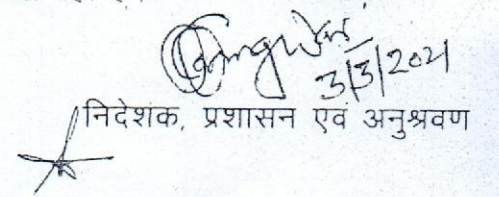 3/3/2021
निदेशक, प्रशासन एवं अनुश्रवण